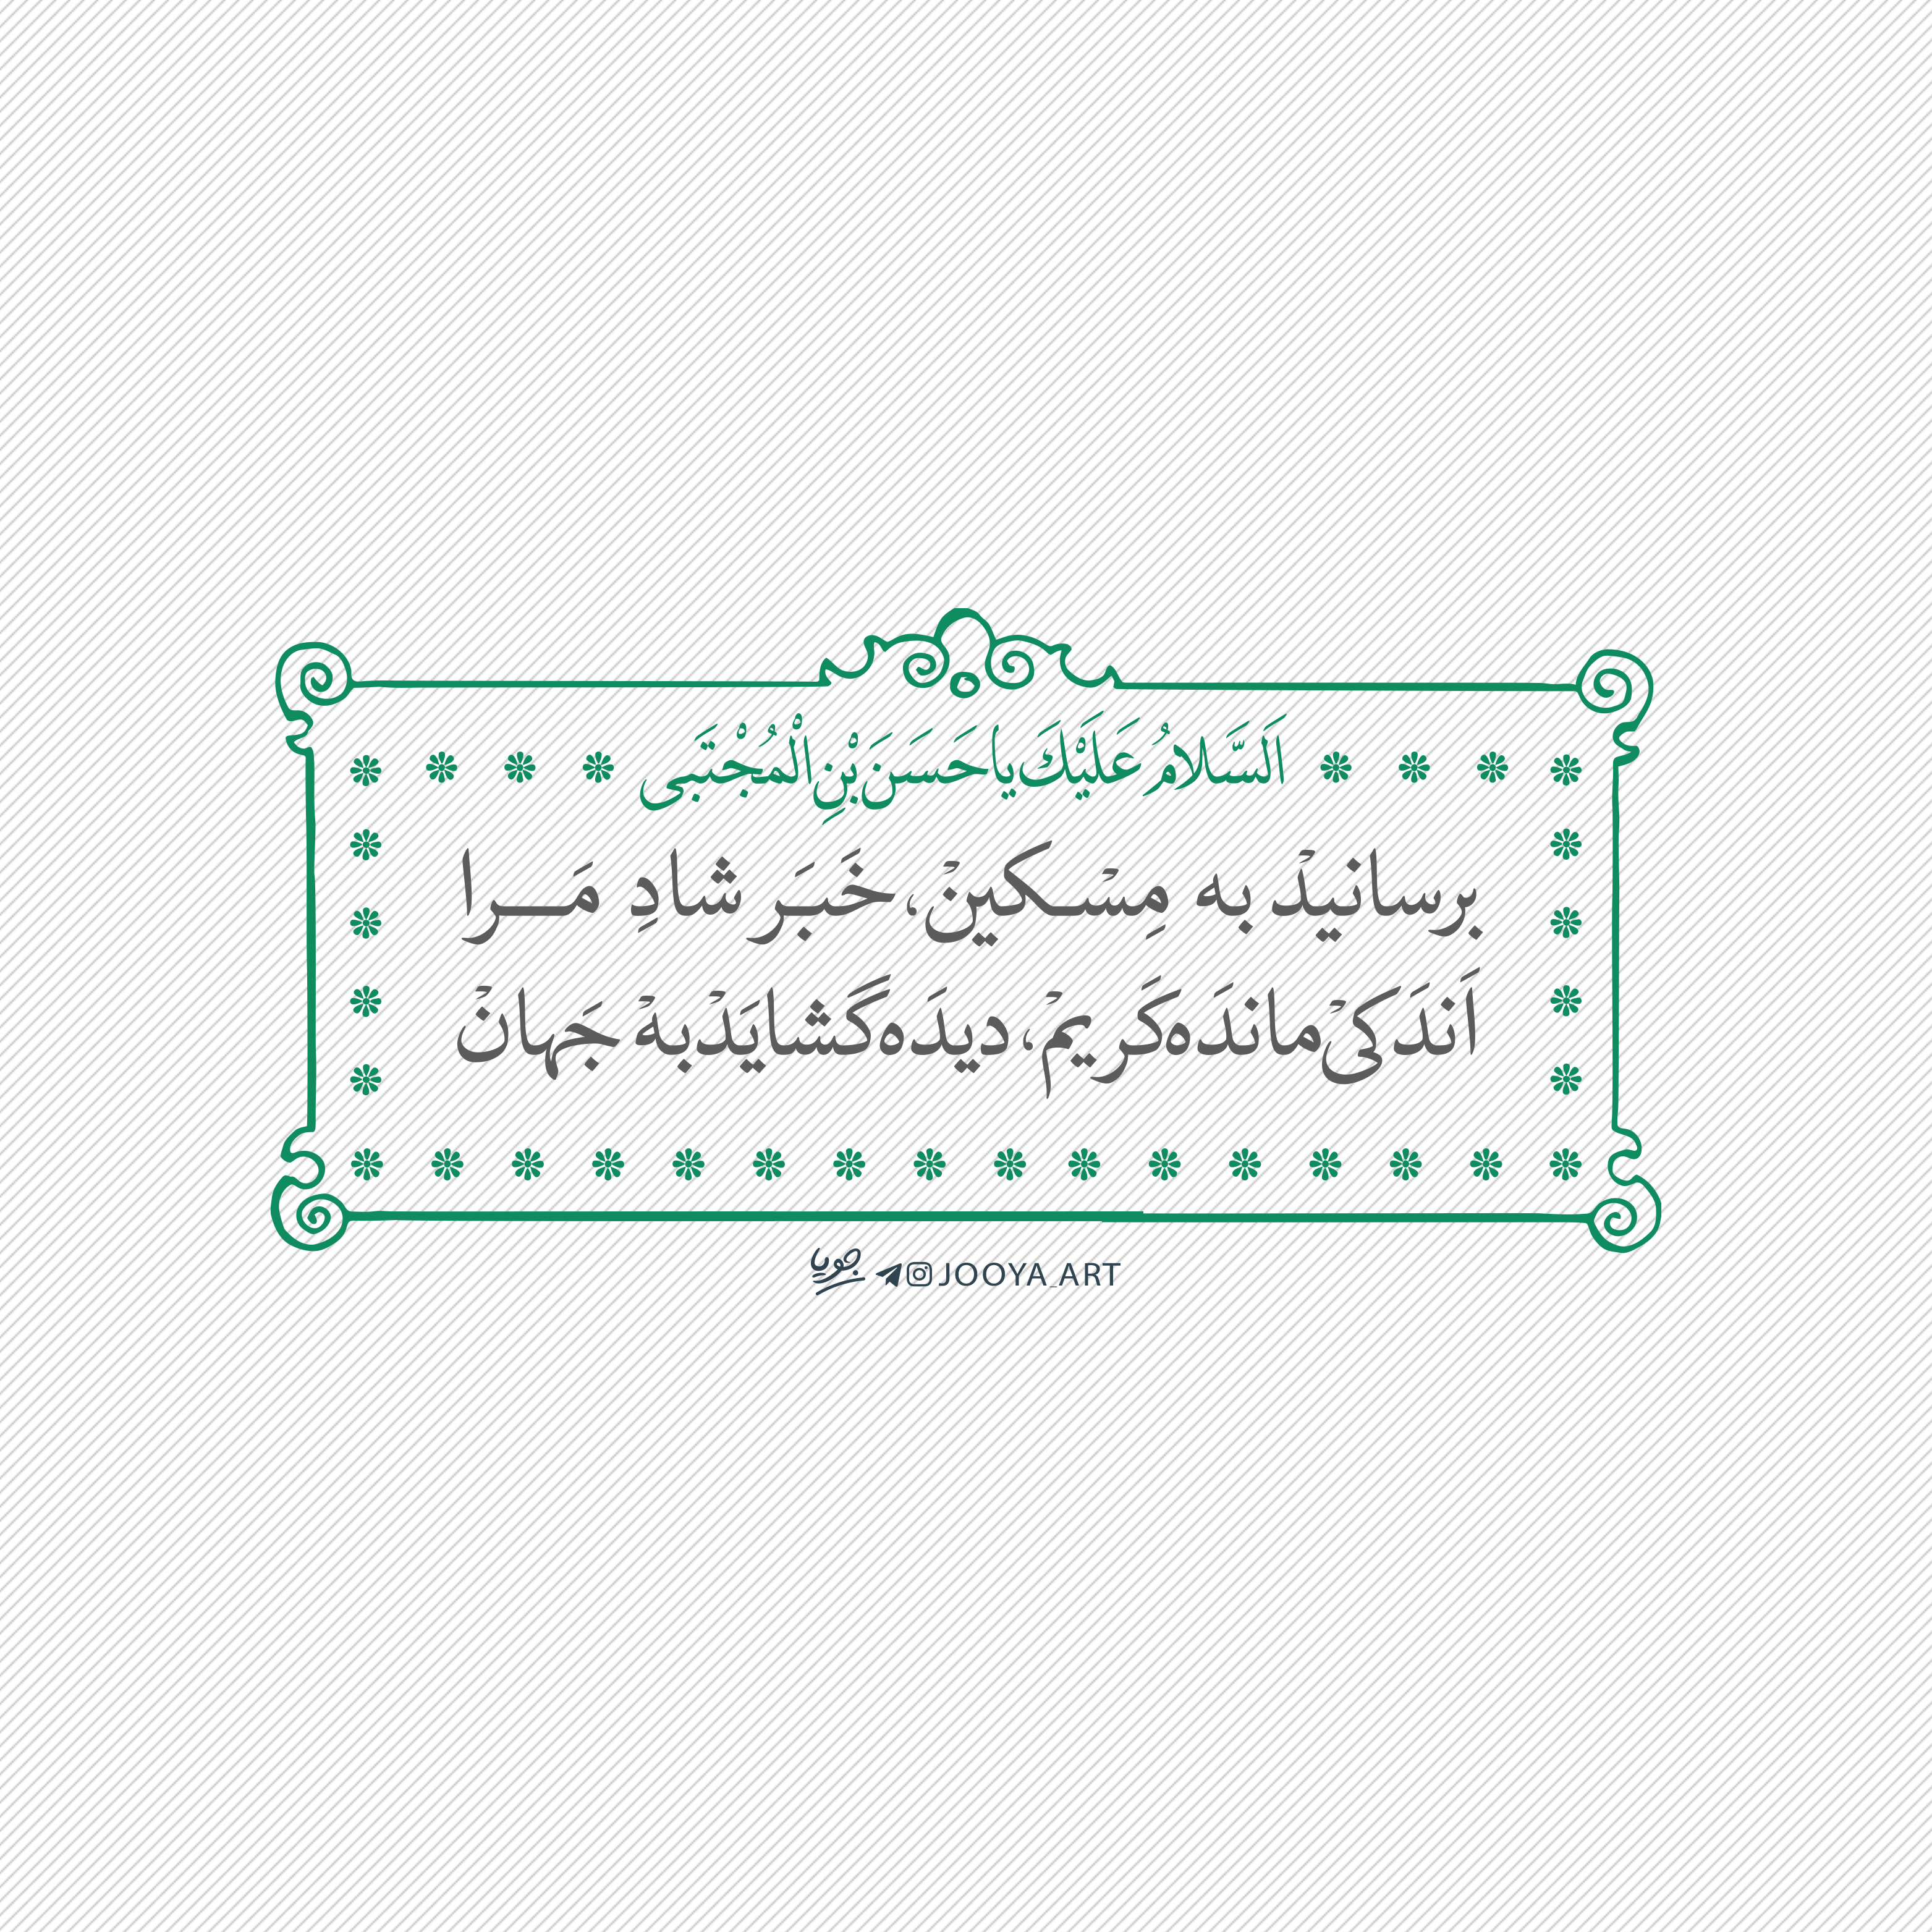 اَلسَّلامُ عَلَیْكَ یا حَسَنَ بْنِ الْمُجْتَبی
برسانیدْ به مِسْکینْ، خَبَر شادِ مَرا
اَندَکیْ مانَده کَریمْ، دیدَه گَشایَدْ بهْ جَهانْ
جویا JOOYA_ART